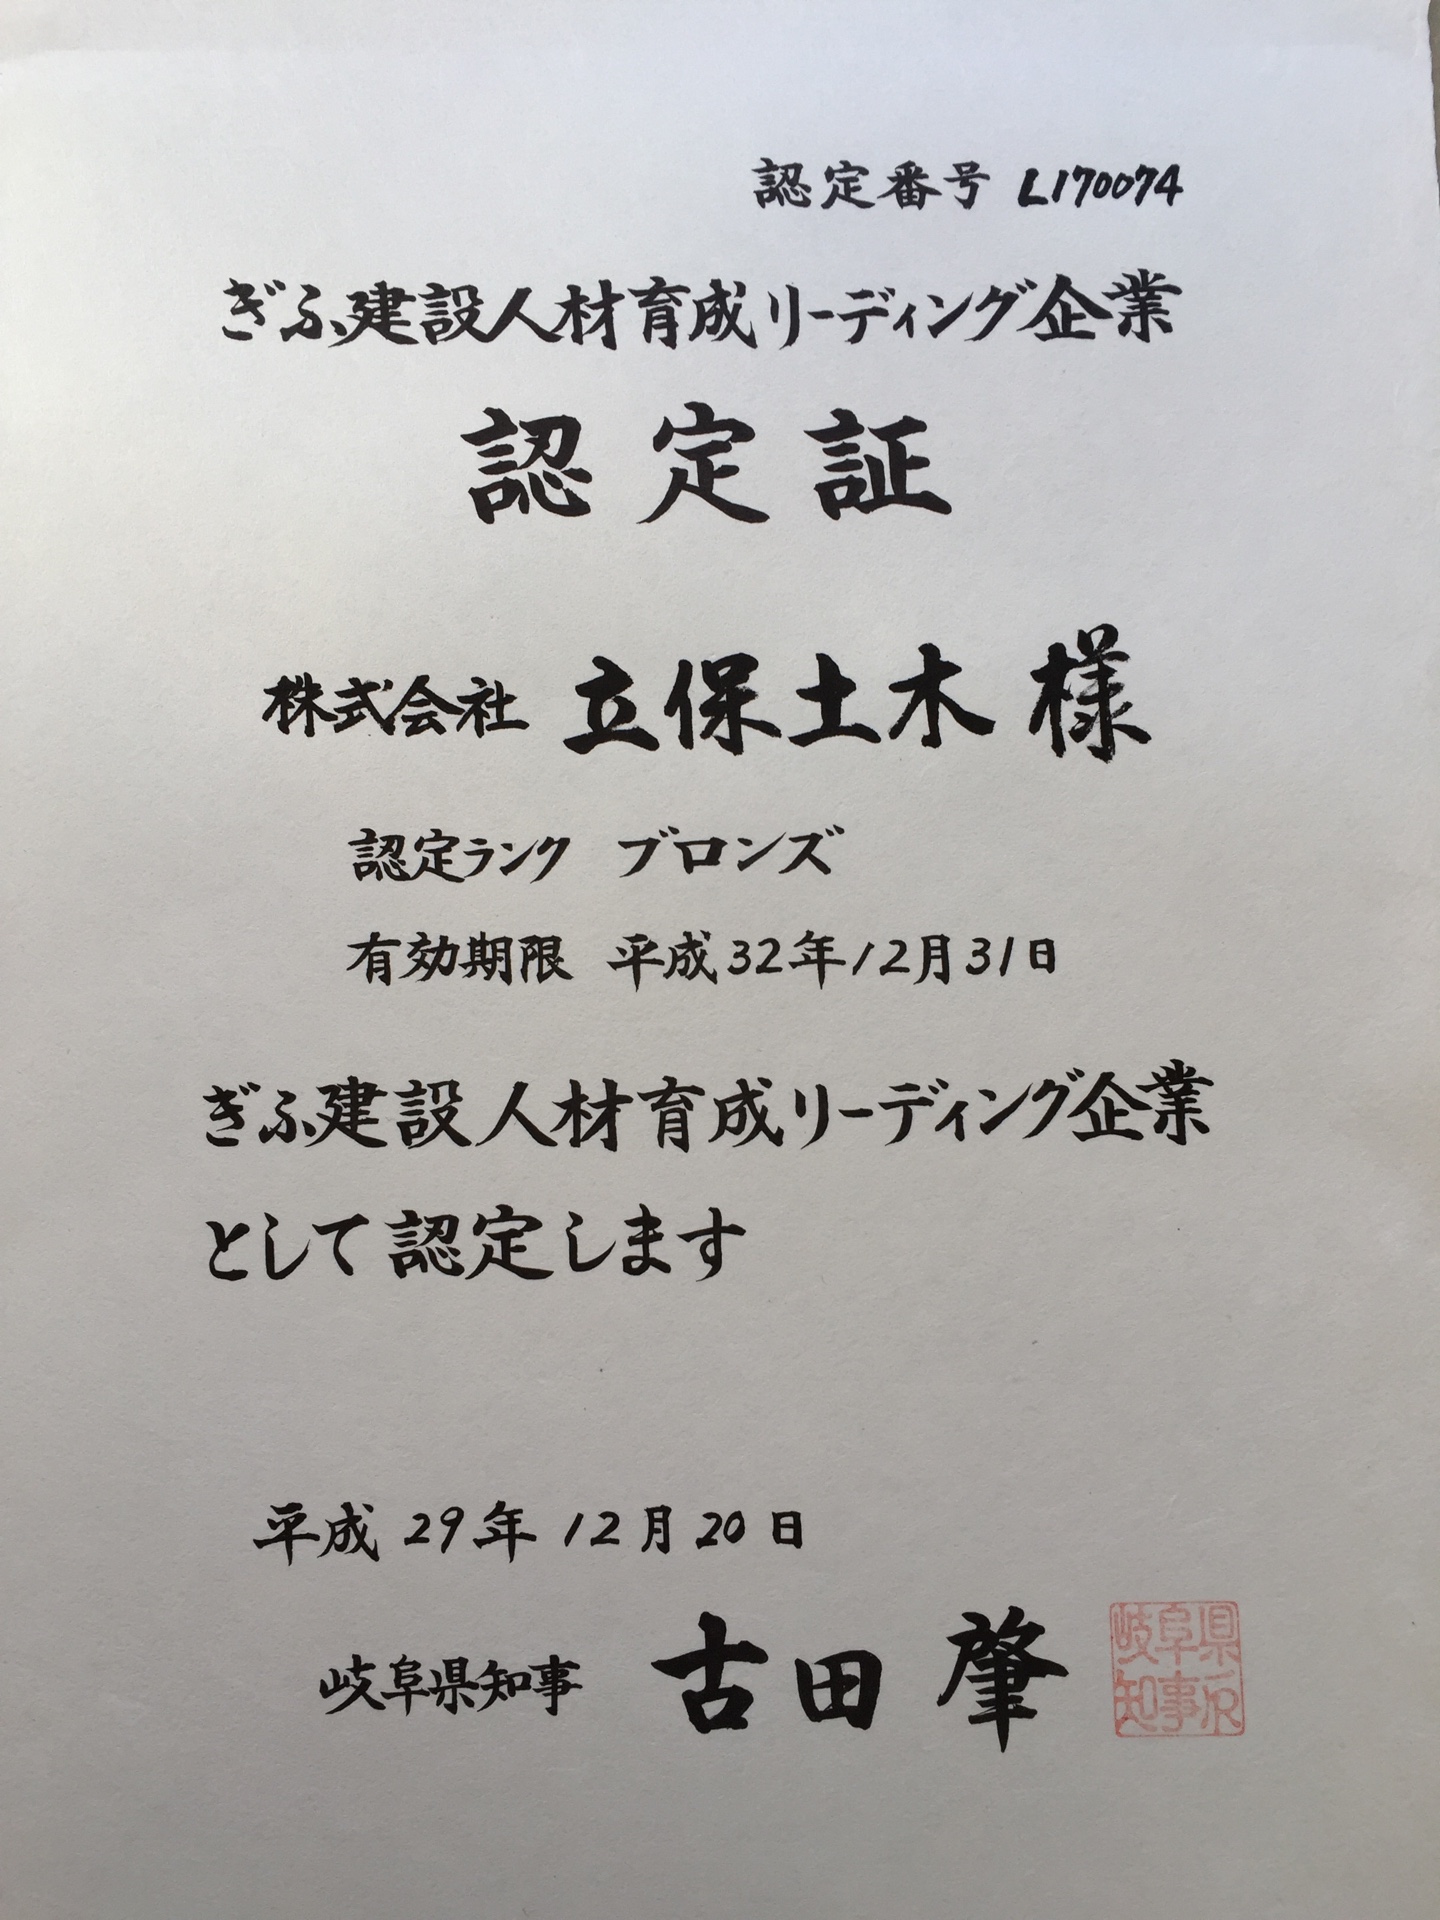 認定番号 L170074
ぎふ建設人材育成リーディング企業
認定証
株式会社 立保土木 様
認定ランク ブロンズ
有効期限 平成32年12月31日
ぎふ建設人材育成リーディング企業
として認定します
平成 29年 12月 20日
岐阜県知事 古田 肇
岐阜県
知事印